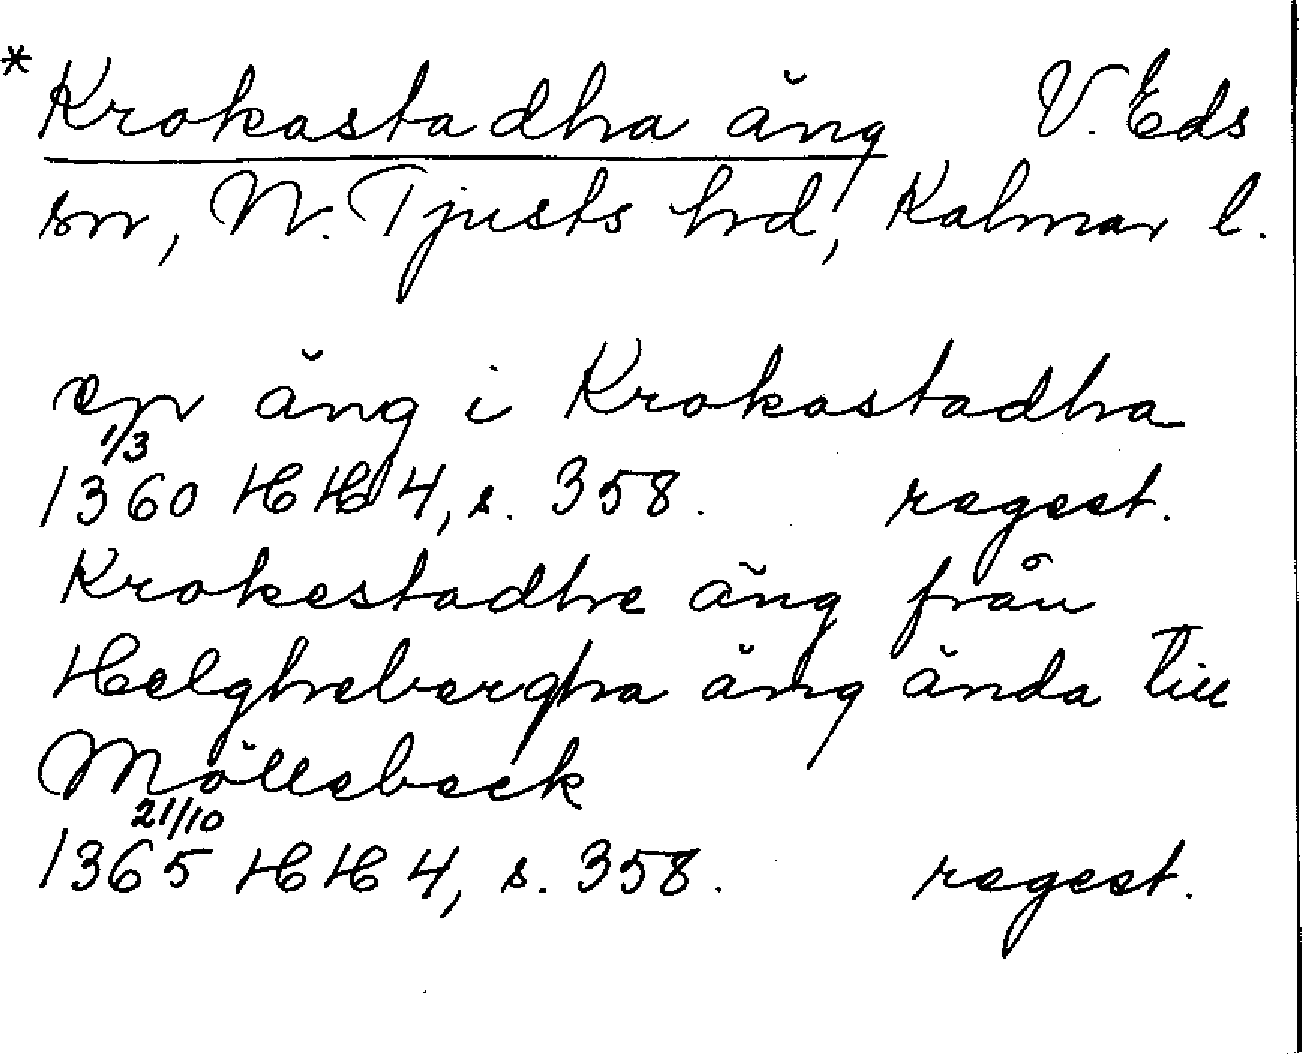 *Krokastadha äng V. Eds
sn, N. Tjusts hrd, Kalmar l.
en äng i Krokastadha
1/3
1360 HH 4, s. 358. regest.
Krokestadhe äng från
Helghebergha äng ända till
Möllebeck
21/10
1365 HH 4, s. 358. regest.